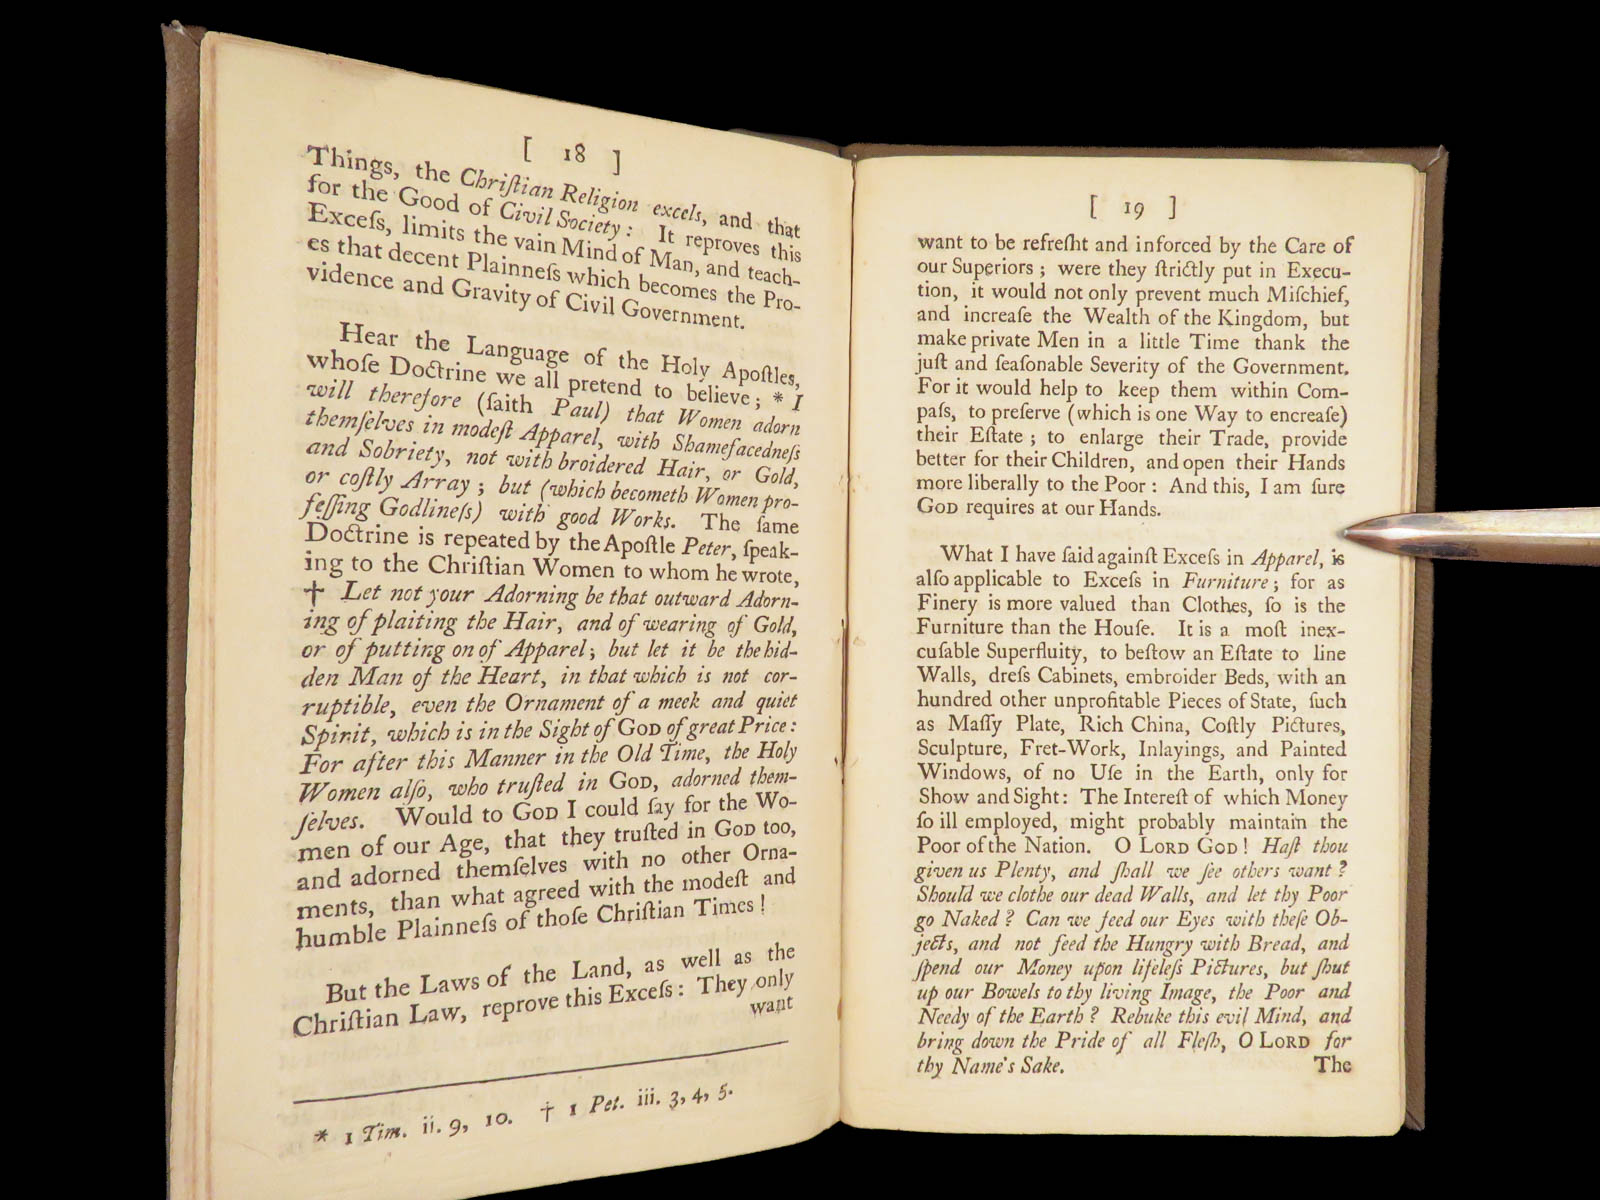 [ 18 ]
Things, the Chriſtian Religion excels, and that
for the Good of Civil Society: It reproves this
Exceſs, limits the vain Mind of Man, and teach-
es that decent Plainneſs which becomes the Pro-
vidence and Gravity of Civil Government.
Hear the Language of the Holy Apoſtles,
whoſe Doctrine we all pretend to believe; * I
will therefore (ſaith Paul) that Women adorn
themſelves in modeſt Apparel, with Shamefacedneſs
and Sobriety, not with broidered Hair, or Gold,
or coſtly Array; but (which becometh Women pro-
feſſing Godlineſs) with good Works. The ſame
Doctrine is repeated by the Apoſtle Peter, ſpeak-
ing to the Chriſtian Women to whom he wrote,
† Let not your Adorning be that outward Adorn-
ing of plaiting the Hair, and of wearing of Gold,
or of putting on of Apparel; but let it be the hid-
den Man of the Heart, in that which is not cor-
ruptible, even the Ornament of a meek and quiet
Spirit, which is in the Sight of GOD of great Price:
For after this Manner in the Old Time, the Holy
Women alſo, who truſted in GOD, adorned them-
ſelves. Would to GOD I could ſay for the Wo-
men of our Age, that they truſted in GOD too,
and adorned themſelves with no other Orna-
ments, than what agreed with the modeſt and
humble Plainneſs of thoſe Chriſtian Times!
But the Laws of the Land, as well as the
Chriſtian Law, reprove this Exceſs: They only
want
* 1 Tim. ii. 9, 10. † 1 Pet. iii. 3, 4, 5.
[ 19 ]
want to be refreſht and inforced by the Care of
our Superiors; were they ſtrictly put in Execu-
tion, it would not only prevent much Miſchief,
and increaſe the Wealth of the Kingdom, but
make private Men in a little Time thank the
juſt and ſeaſonable Severity of the Government.
For it would help to keep them within Com-
paſs, to preſerve (which is one Way to encreaſe)
their Eſtate; to enlarge their Trade, provide
better for their Children, and open their Hands
more liberally to the Poor: And this, I am ſure
GOD requires at our Hands.
What I have ſaid againſt Exceſs in Apparel, is
alſo applicable to Exceſs in Furniture; for as
Finery is more valued than Clothes, ſo is the
Furniture than the Houſe. It is a moſt inex-
cuſable Superfluity, to beſtow an Eſtate to line
Walls, dreſs Cabinets, embroider Beds, with an
hundred other unprofitable Pieces of State, ſuch
as Maſſy Plate, Rich China, Coſtly Pictures,
Sculpture, Fret-Work, Inlayings, and Painted
Windows, of no Uſe in the Earth, only for
Show and Sight: The Intereſt of which Money
ſo ill employed, might probably maintain the
Poor of the Nation. O LORD GOD! Haſt thou
given us Plenty, and ſhall we ſee others want?
Should we clothe our dead Walls, and let thy Poor
go Naked? Can we feed our Eyes with theſe Ob-
jects, and not feed the Hungry with Bread, and
ſpend our Money upon lifeleſs Pictures, but ſhut
up our Bowels to thy living Image, the Poor and
Needy of the Earth? Rebuke this evil Mind, and
bring down the Pride of all Fleſh, O LORD for
thy Name's Sake.
The